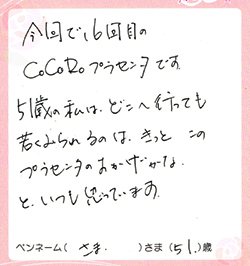 今回で、16回目の
CoCoRoプラセンタです。
51歳の私は、どこへ行っても
若くみられるのは、きっと この
プラセンタのおかげかな。
と、いつも思っています。
ペンネーム( さき. )さま (51.)歳